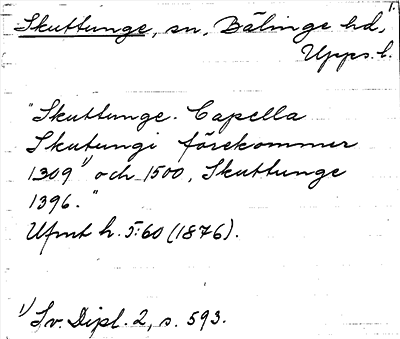 1.
Skuttunge, sn, Bälinge hd,
Upps. l.
"Skuttunge. Capella
Skutungi förekommer
1309 1) och 1500, Skuttunge
1396."
Ufmt h. 5:60 (1876).
1) Sv. Dipl. 2, s. 593.